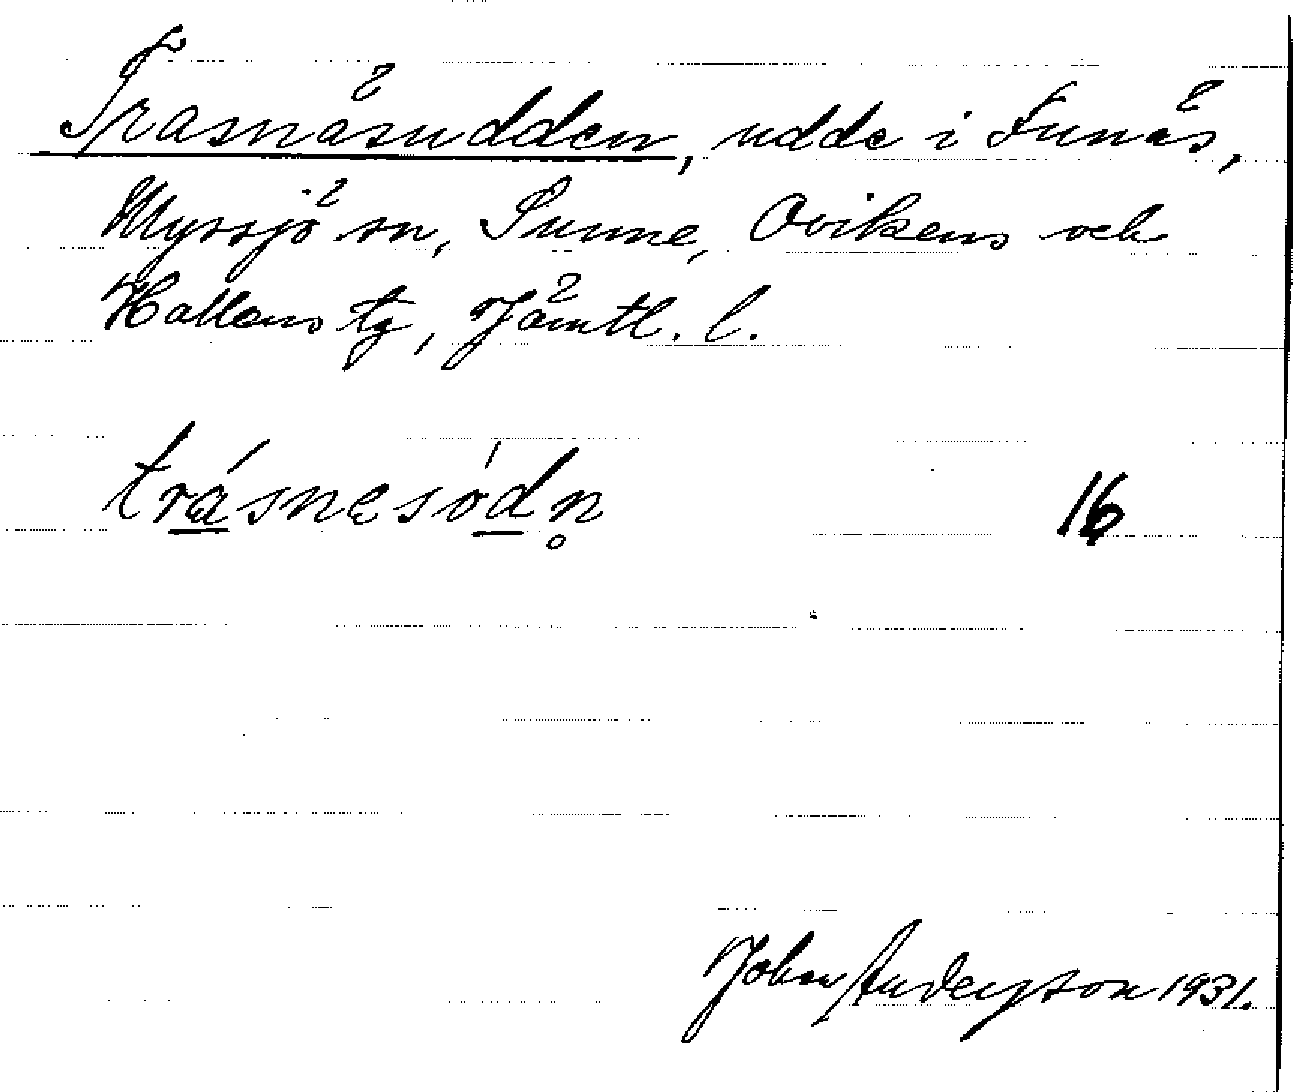 Trasnäsudden, udde i Funäs,
Myssjö sn, Sunne, Ovikens och
Hallens tg, Jämtl. l.
trásnesódn̥ 16
Johan Anderson 1931.